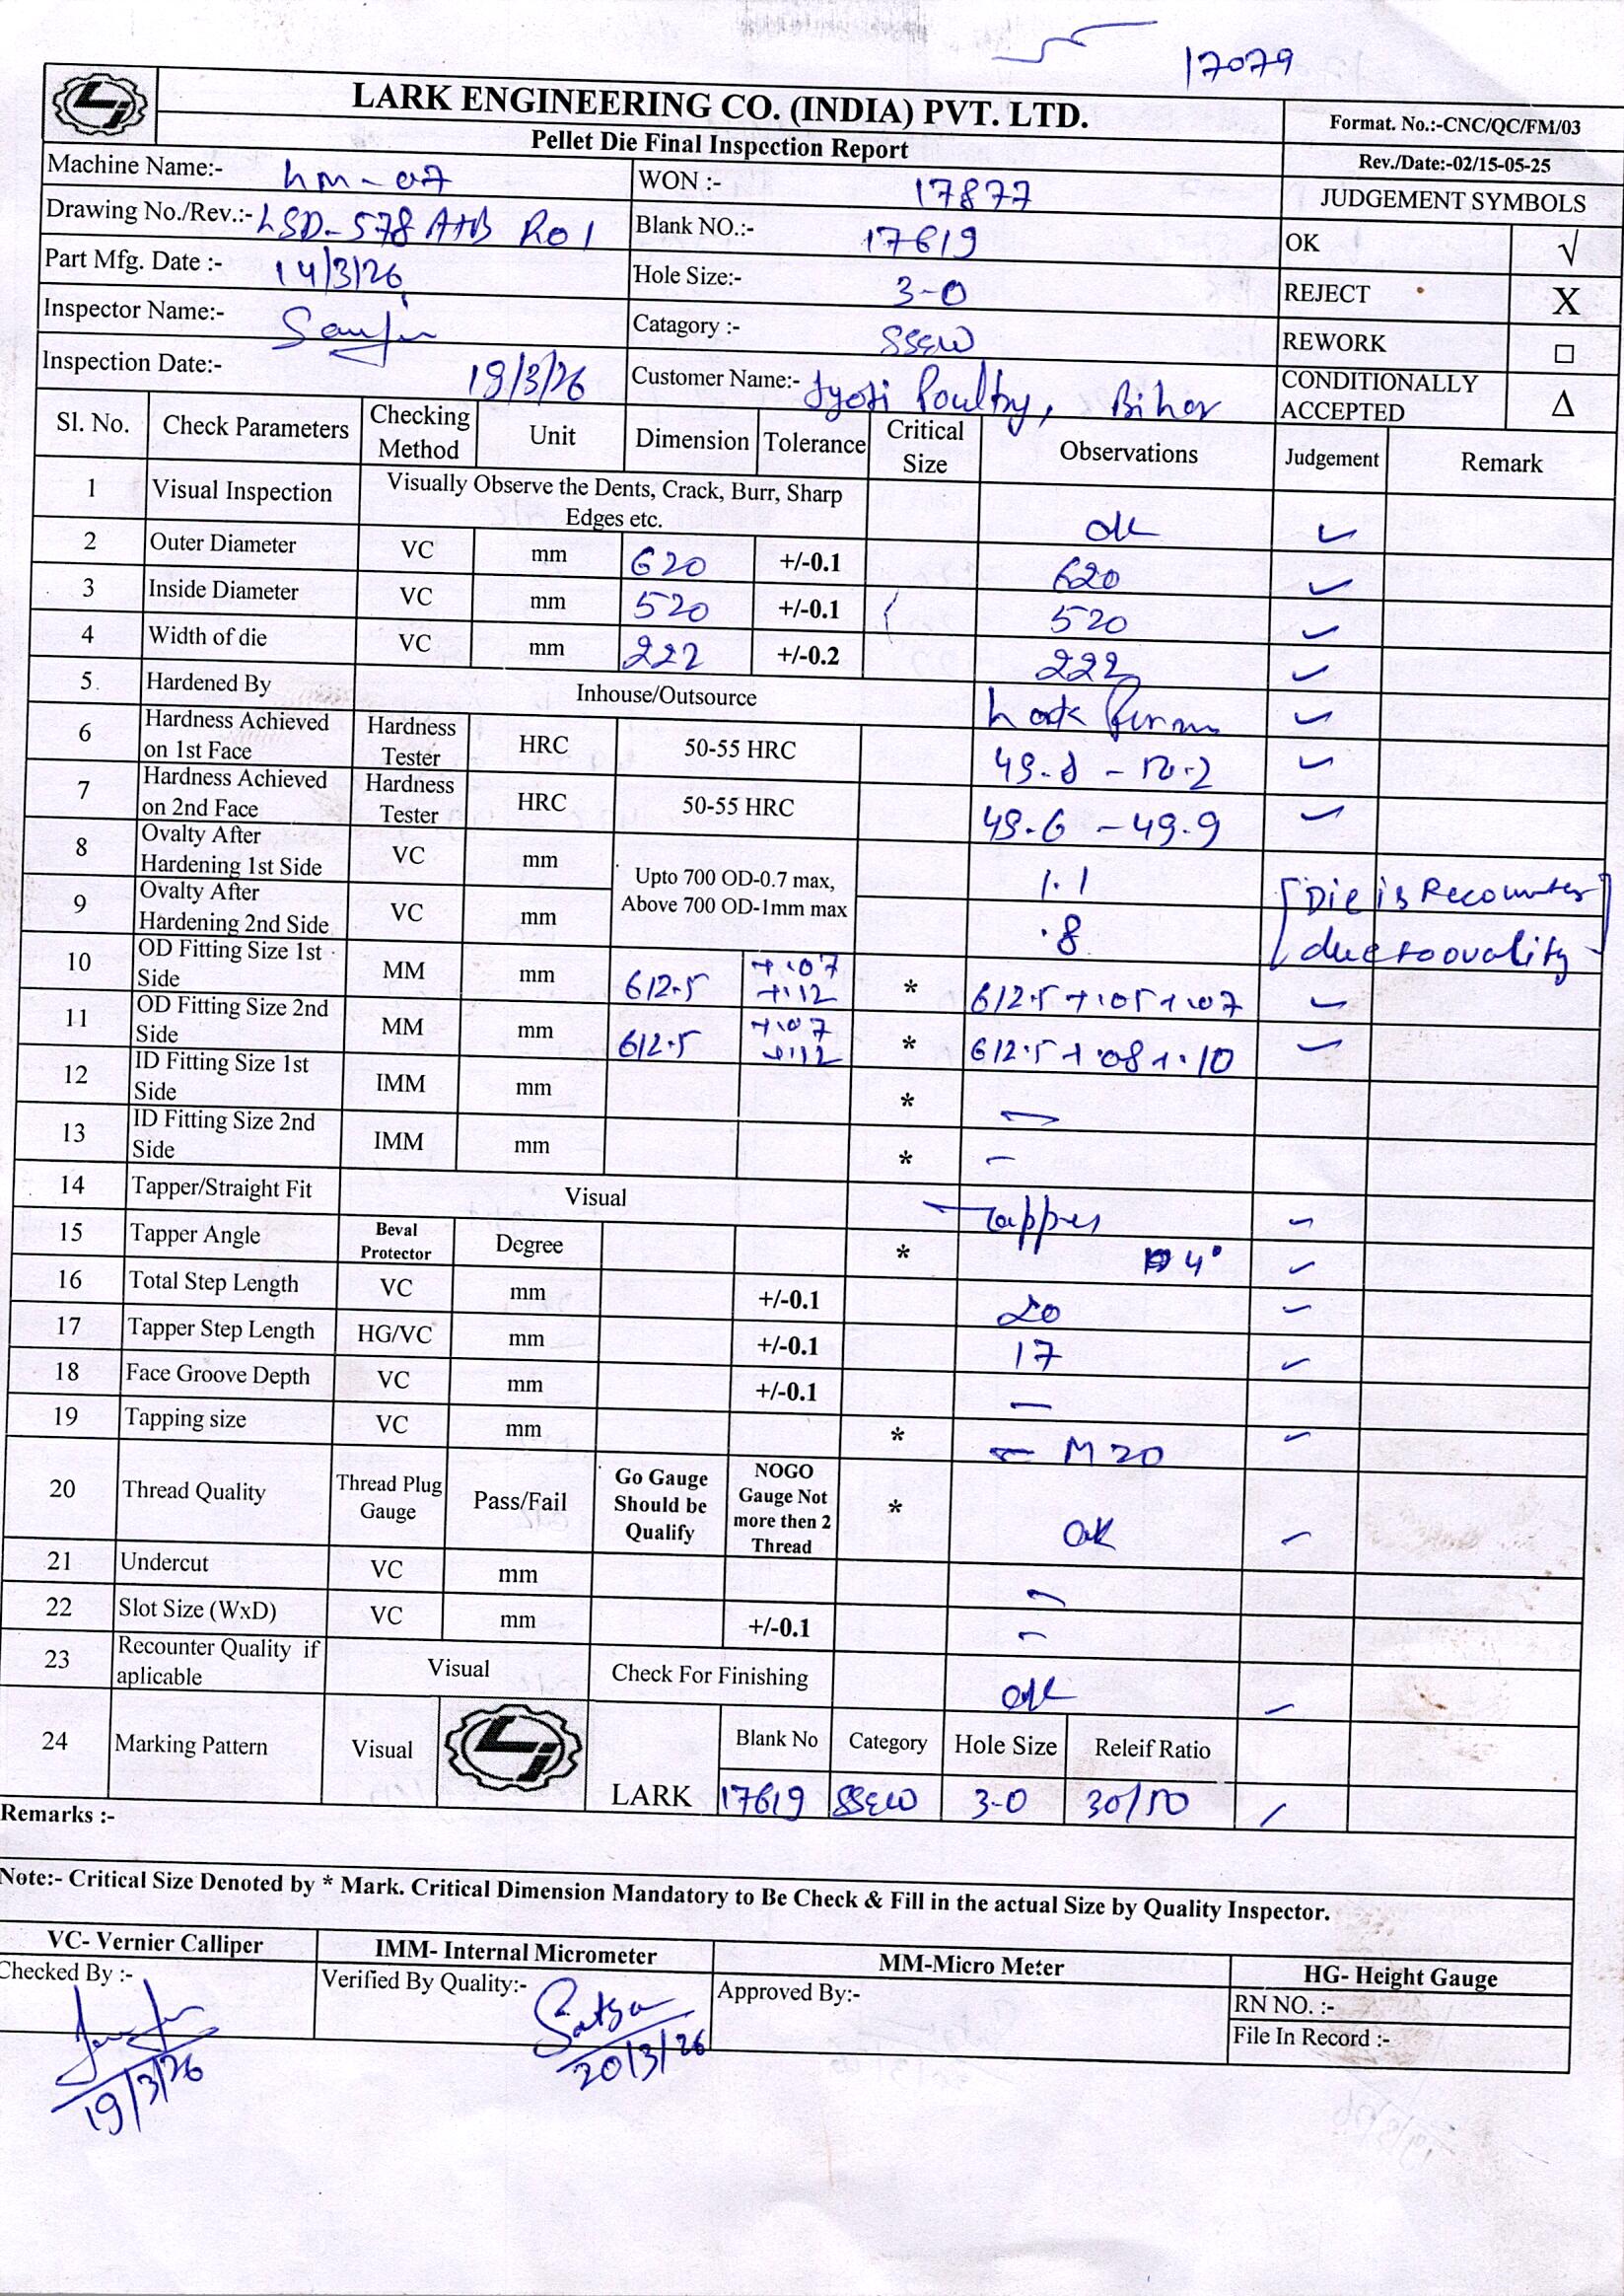 17079
LARK ENGINEERING CO. (INDIA) PVT. LTD.
Pellet Die Final Inspection Report
Format. No.:-CNC/QC/FM/03
Rev./Date:-02/15-05-25
Machine Name:- hm-07 WON :- 17877 JUDGEMENT SYMBOLS
Drawing No./Rev.:- LSD-578 A+B R01 Blank NO.:- 17619 OK √
Part Mfg. Date :- 14/3/26 Hole Size:- 3-0 REJECT X
Inspector Name:- Catagory :- SSEW REWORK □
Inspection Date:- 19/3/26 Customer Name:- Jyoti Poultry, Bihar CONDITIONALLY ACCEPTED Δ
Sl. No. Check Parameters Checking Method Unit Dimension Tolerance Critical Size Observations Judgement Remark
1 Visual Inspection Visually Observe the Dents, Crack, Burr, Sharp Edges etc. ok ✓
2 Outer Diameter VC mm 620 +/-0.1 620 ✓
3 Inside Diameter VC mm 520 +/-0.1 520 ✓
4 Width of die VC mm 222 +/-0.2 222 ✓
5. Hardened By Inhouse/Outsource Lark ✓
6 Hardness Achieved on 1st Face Hardness Tester HRC 50-55 HRC 49.8 - 50.2 ✓
7 Hardness Achieved on 2nd Face Hardness Tester HRC 50-55 HRC 49.6 - 49.9 ✓
8 Ovalty After Hardening 1st Side VC mm Upto 700 OD-0.7 max, Above 700 OD-1mm max 1.1 [Die is Recounter
9 Ovalty After Hardening 2nd Side VC mm .8 due to ovality]
10 OD Fitting Size 1st Side MM mm 612.5 +.07 +.12 * 612.5 +.05 +.07 ✓
11 OD Fitting Size 2nd Side MM mm 612.5 +.07 +.12 * 612.5 +.08 +.10 ✓
12 ID Fitting Size 1st Side IMM mm * —
13 ID Fitting Size 2nd Side IMM mm * —
14 Tapper/Straight Fit Visual Tapper ✓
15 Tapper Angle Beval Protector Degree * 4° ✓
16 Total Step Length VC mm +/-0.1 20 ✓
17 Tapper Step Length HG/VC mm +/-0.1 17 ✓
18 Face Groove Depth VC mm +/-0.1 —
19 Tapping size VC mm * M20 ✓
20 Thread Quality Thread Plug Gauge Pass/Fail Go Gauge Should be Qualify NOGO Gauge Not more then 2 Thread * ok ✓
21 Undercut VC mm —
22 Slot Size (WxD) VC mm +/-0.1 —
23 Recounter Quality if aplicable Visual Check For Finishing ok ✓
24 Marking Pattern Visual LARK Blank No Category Hole Size Releif Ratio
17619 SSEW 3-0 30/50 ✓
Remarks :-
Note:- Critical Size Denoted by * Mark. Critical Dimension Mandatory to Be Check & Fill in the actual Size by Quality Inspector.
VC- Vernier Calliper IMM- Internal Micrometer MM-Micro Meter HG- Height Gauge
Checked By :- Verified By Quality:- Satya Approved By:- RN NO. :-
File In Record :-
19/3/26 20/3/26